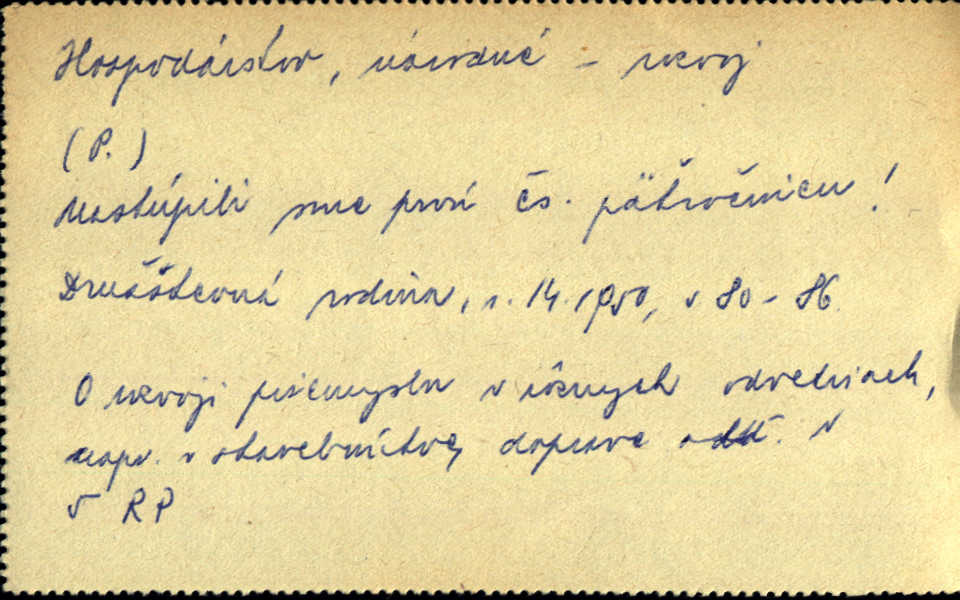 Hospodárstvo, národné - rozvoj
(P.)
Nastúpili sme prvú čs. päťročnicu!
Družstevná rodina, r. 14. 1950, s 80-86.
O rozvoji priemyslu v rôznych odvetviach,
napr. v stavebníctve, doprave atď. v
5 RP